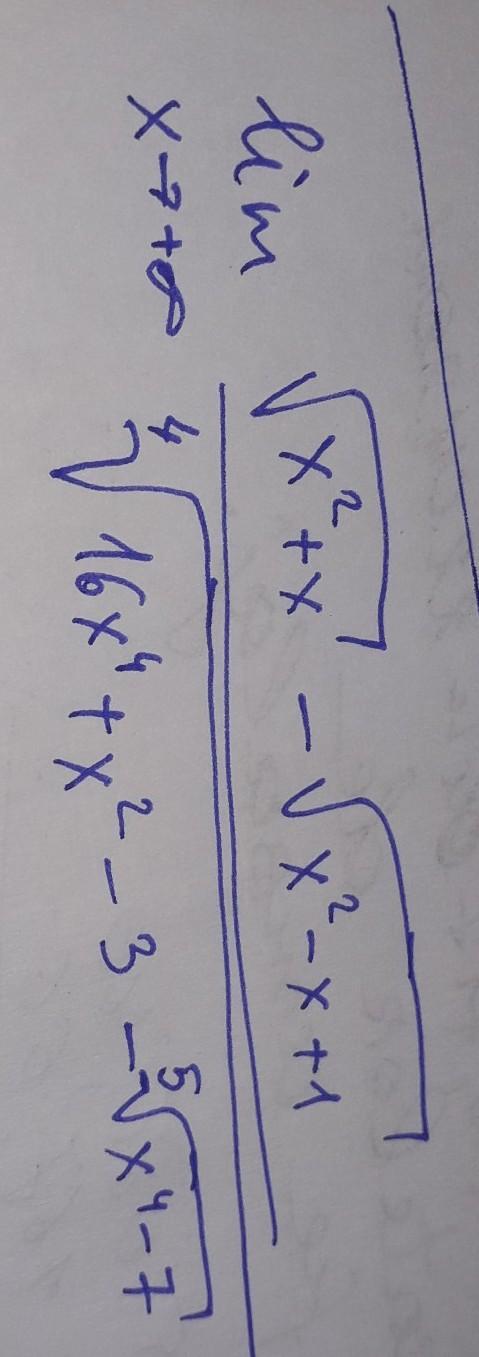 lim √(x²+x) - √(x²-x+1)
x→+∞ ⁴√(16x⁴+x²-3) - ⁵√(x⁴-7)